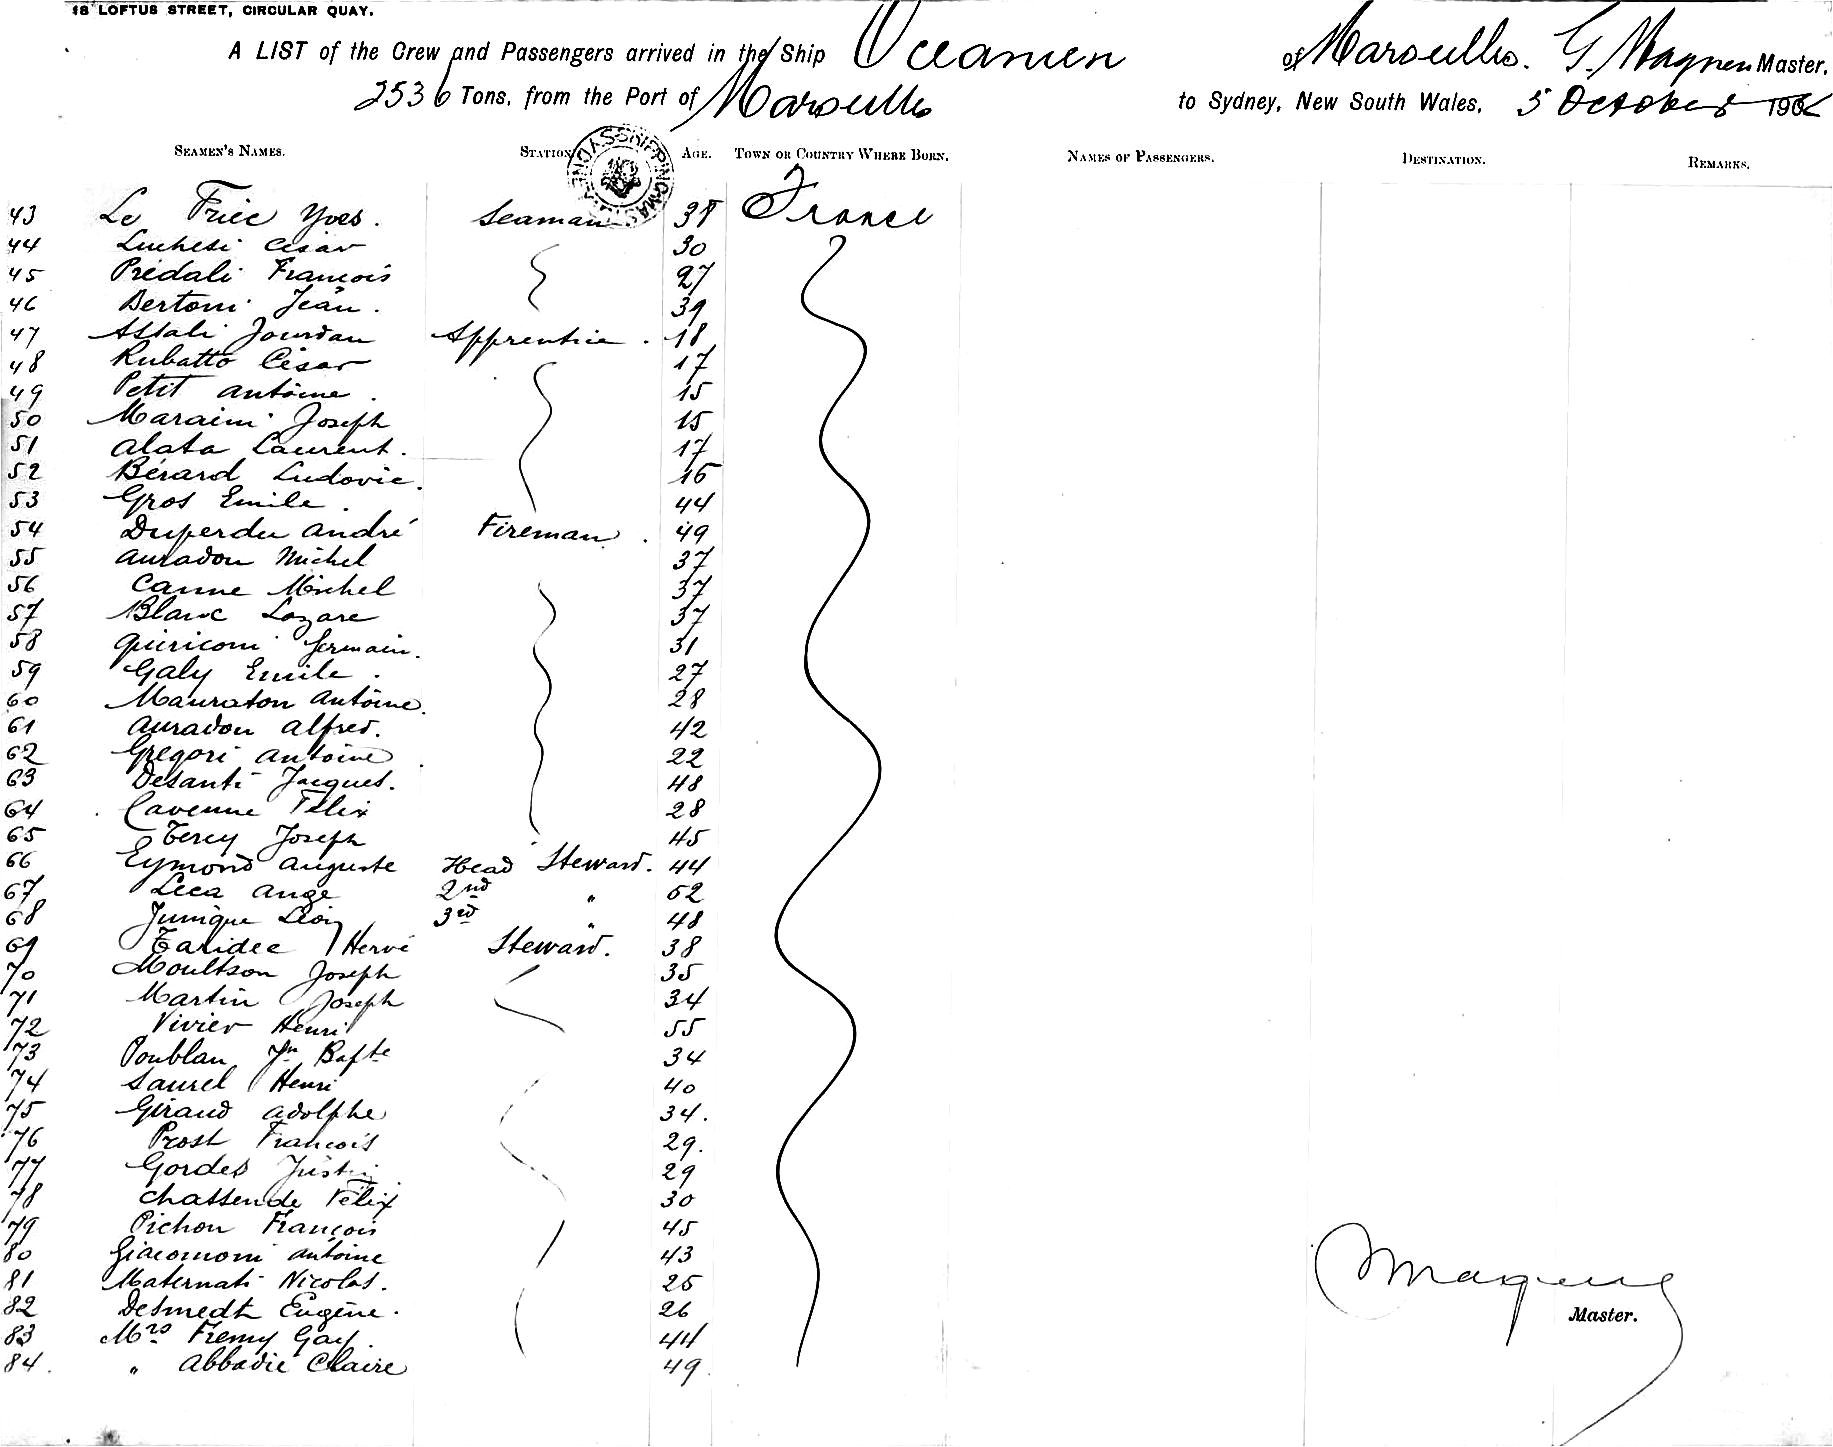 18 LOFTUS STREET, CIRCULAR QUAY.
A LIST of the Crew and Passengers arrived in the Ship Oceanien of Marseilles. G. Magnen Master,
2536 Tons, from the Port of Marseilles to Sydney, New South Wales, 5 October 190
SEAMEN'S NAMES. STATION AGE. TOWN OR COUNTRY WHERE BORN. NAMES OF PASSENGERS. DESTINATION. REMARKS.
43 Le Friec Yves. Seaman 38 France
44 Luchesi César 30
45 Prédali François 27
46 Bertoni Jean. 39
47 Assali Jourdan Apprentice. 18
48 Rubatto César 17
49 Petit Antoine. 15
50 Maraini Joseph 15
51 Alata Laurent. 17
52 Bérard Ludovic. 16
53 Gros Emile. 44
54 Duperdu André Fireman. 49
55 Auradou Michel 37
56 Canne Michel 37
57 Blanc Lazare 37
58 Quiriconi Germain. 31
59 Galy Emile. 27
60 Mauraton Antoine. 28
61 Auradou Alfred. 42
62 Gregori Antoine 22
63 Desanti Jacques. 48
64 Cavenne Félix 28
65 Tercy Joseph 45
66 Eymond Auguste Head Steward. 44
67 Leca Ange 2nd " 52
68 Junique Léon 3rd " 48
69 Taridec Hervé Steward. 38
70 Moultson Joseph 35
71 Martin Joseph 34
72 Vivier Henri 55
73 Poublan Jn Bapte 34
74 Saurel Henri 40
75 Giraud Adolphe 34.
76 Prost François 29.
77 Gordes Justin 29
78 Chassende Félix 30
79 Pichon François 45
80 Giacomoni Antoine 43
81 Maternati Nicolas. 25
82 Desmedt Eugène. 26
83 Mrs Fremy Gay. 44
84. " Abbadie Claire 49.
Magnen
Master.